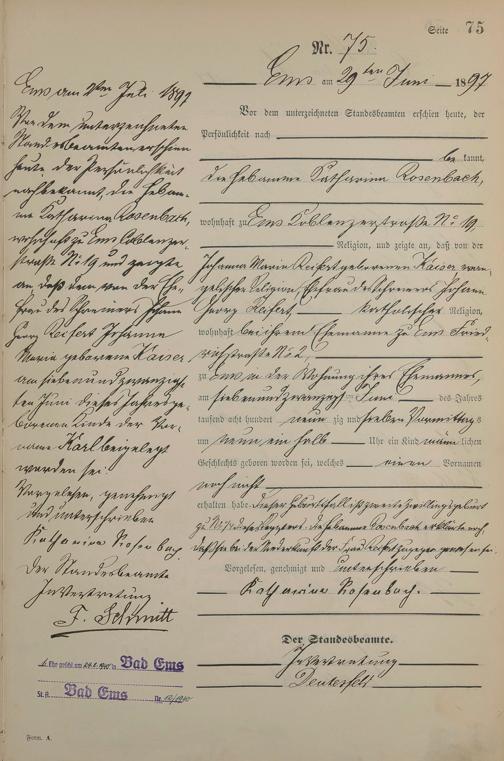 Seite 75
Nr. 75.
Ems am 29ten Juni 1897
Vor dem unterzeichneten Standesbeamten erschien heute, der
Persönlichkeit nach
be kannt,
die Hebamme Katharina Rosenbach,
wohnhaft zu Ems Coblenzerstraße No 19
Religion, und zeigte an, daß von der
Johanna Maria Reifert geborenen Kaiser evan-
gelischer Religion, Ehefrau des Schreiners Johann
Georg Reifert, katholischer Religion,
wohnhaft bei ihrem Ehemanne zu Ems Fried-
richstraße No 2,
zu Ems in der Wohnung ihres Ehemannes,
am siebenundzwanzigsten Juni des Jahres
tausend acht hundert neun zig und sieben Vormittags
um neun ein halb Uhr ein Kind männ lichen
Geschlechts geboren worden sei, welches einen Vornamen
noch nicht
erhalten habe. Dieser Geburtsfall ist zweite Zwillingsgeburt
zu No 74 dieses Registers. Die Hebamme Rosenbach erklärte noch,
daß sie bei der Niederkunft der Frau Reifert zugegen gewesen sei.
Vorgelesen, genehmigt und unterschrieben
Katharina Rosenbach.
Der Standesbeamte.
In Vertretung
Ems am Juli 1897
Vor dem unterzeichneten
Standesbeamten erschien
heute der Persönlichkeit
nach bekannt, die Hebam-
me Katharina Rosenbach,
wohnhaft zu Ems Coblenzer-
straße No 19 und zeigte
an, daß dem von der Ehe-
frau des Schreiners Johann
Georg Reifert Johanna
Maria geborene Kaiser
am siebenundzwanzigs-
ten Juni dieses Jahres ge-
borenen Kinde der Vor-
name Karl beigelegt
worden sei.
Vorgelesen, genehmigt
und unterschrieben
Katharina Rosenbach.
Der Standesbeamte
In Vertretung
F. Schmitt
Ehe geschl. am in Bad Ems
St. A. Bad Ems Nr.
Form. A.